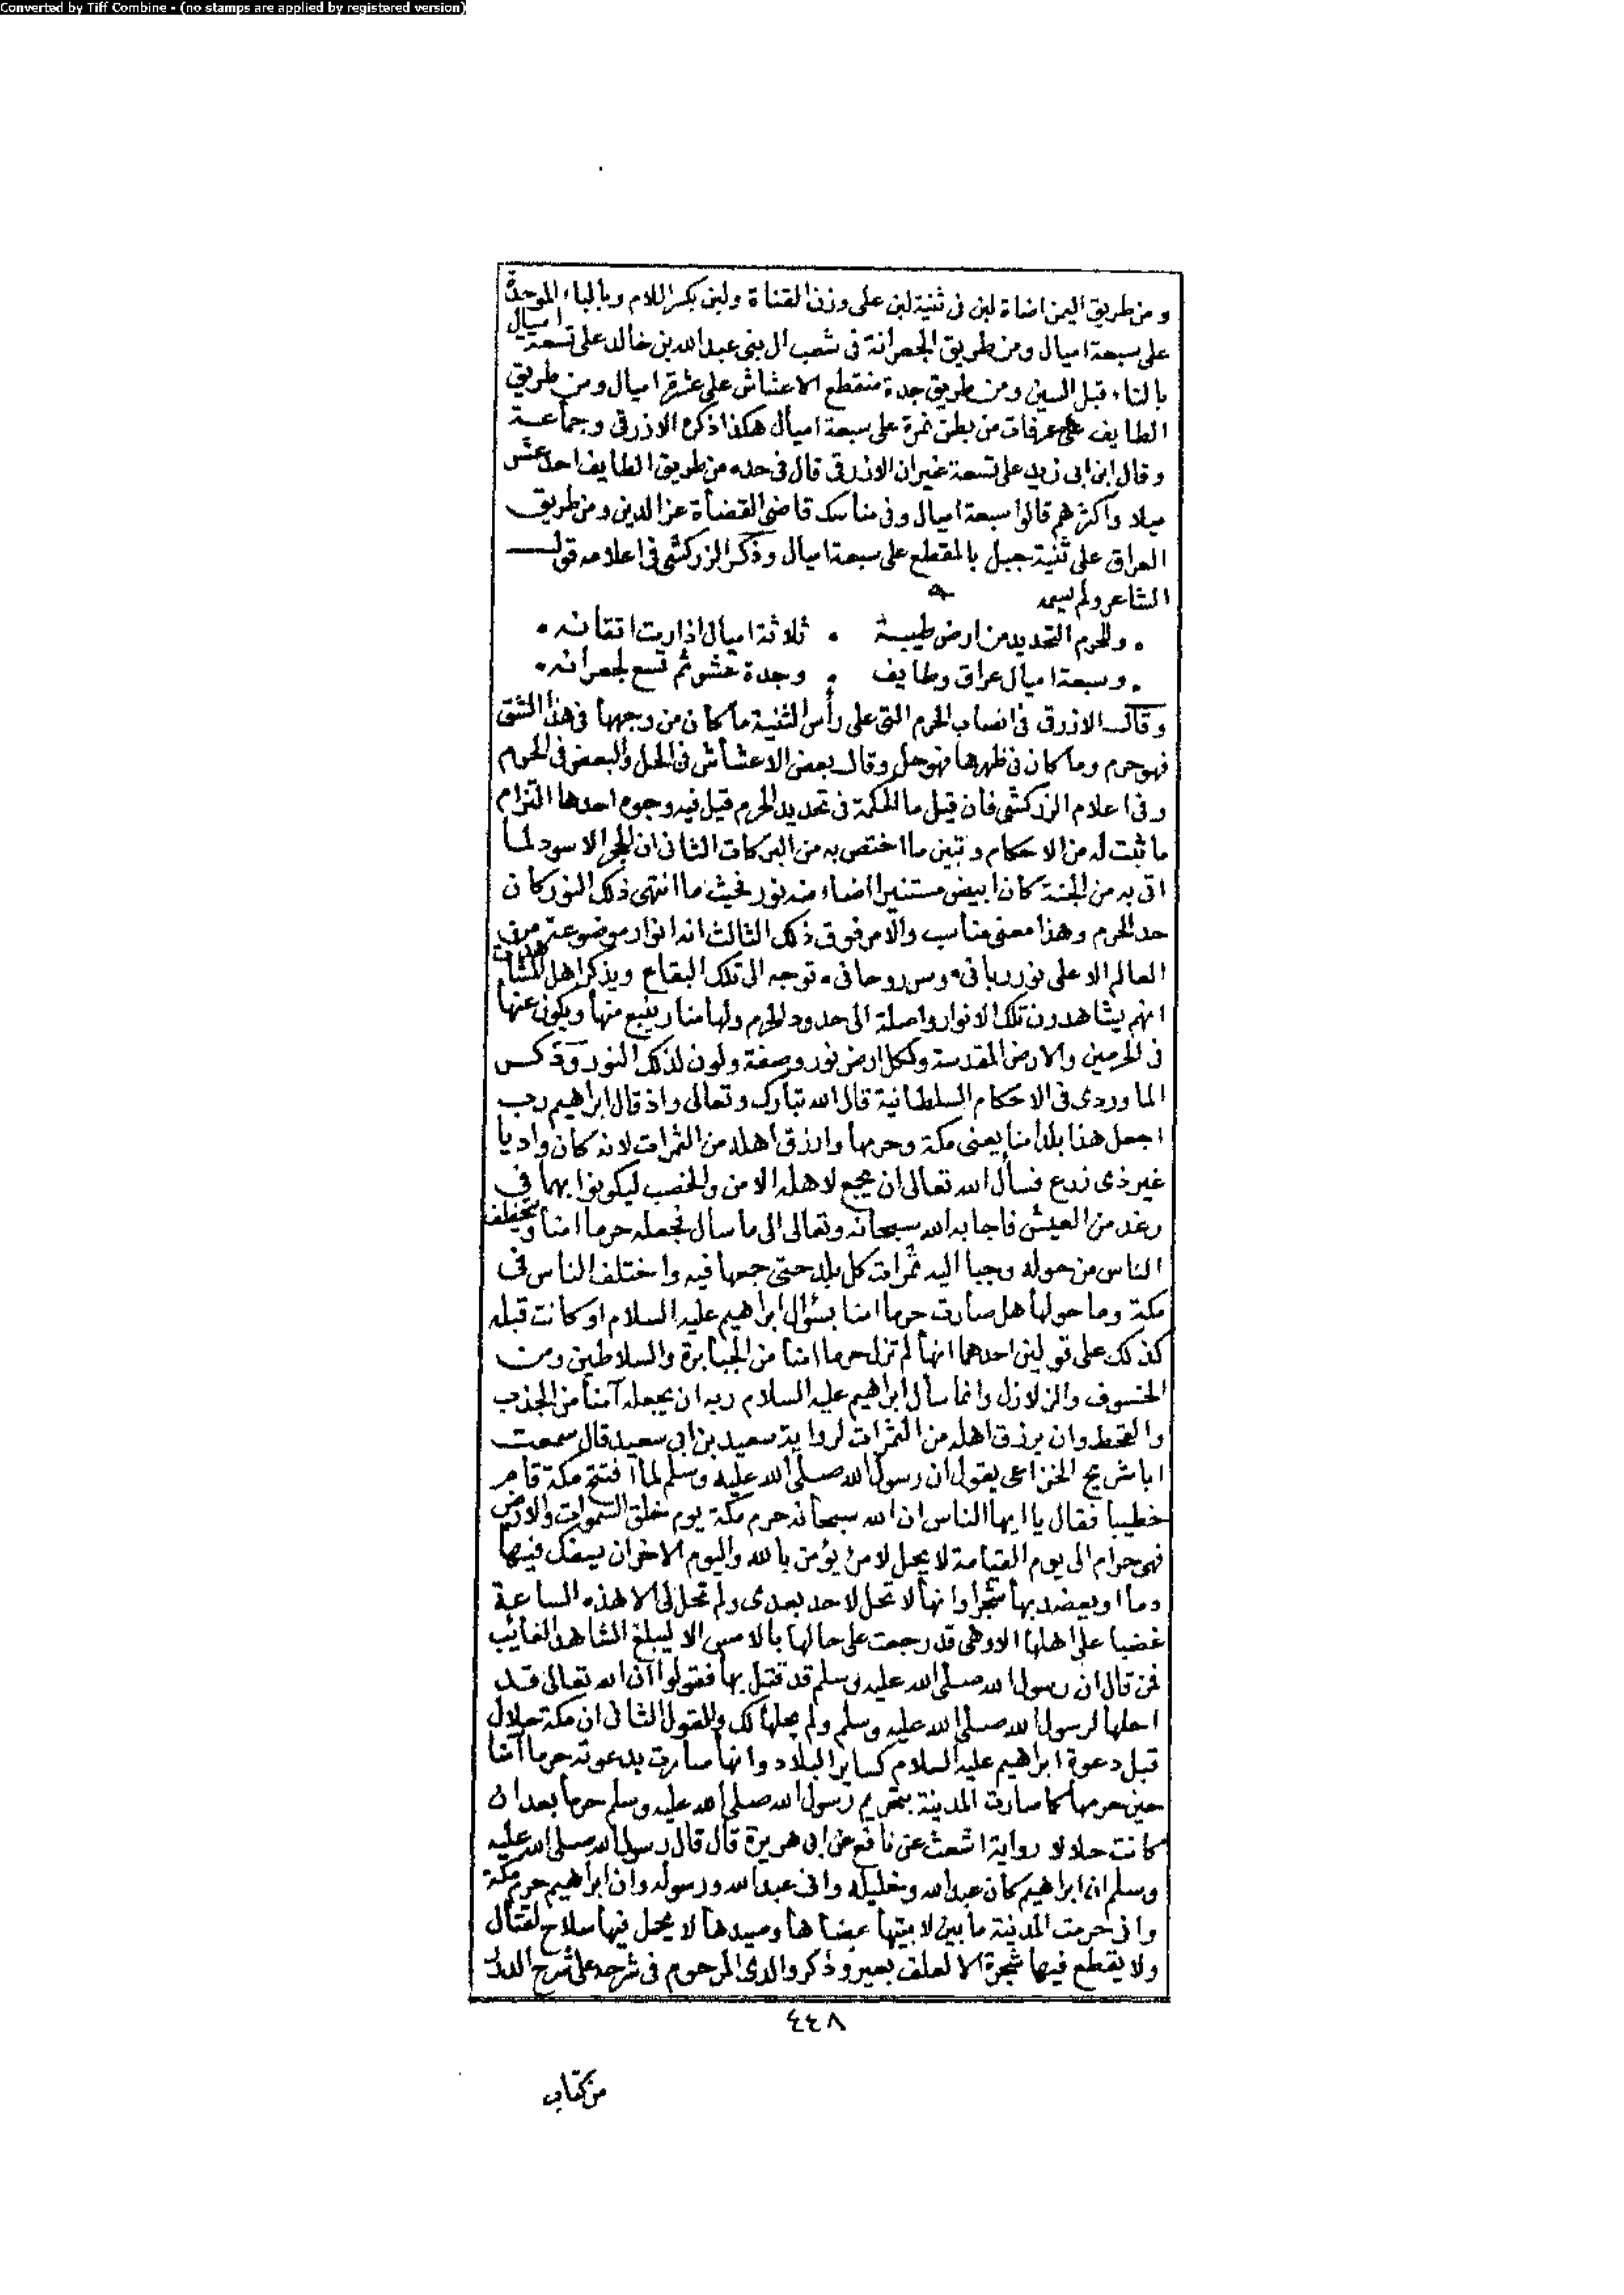 Converted by Tiff Combine - (no stamps are applied by registered version)
ومن طريق اليمن اضاة لبن فى ثنية لبن على وزن القناة ولبن بكسر اللام وبالباء الموحدة
على سبعة اميال ومن طريق الجعرانة فى شعب ال بنى عبد الله بن خالد على تسعة اميال
بالتاء قبل السين ومن طريق جدة منقطع الاعشاش على عشرة اميال ومن طريق
الطايف على عرفات من بطن نمرة على سبعة اميال هكذا ذكره الازرقى وجماعة
وقال ابن ابى زيد على تسعة غيران الازرقى قال فى حده من طريق الطايف احد عشر
ميلا واكثرهم قالوا سبعة اميال وفى مناسك قاضى القضاة عز الدين ومن طريق
العراق على ثنية جبل بالمقطع على سبعة اميال وذكر الزركشى فى اعلامه قول
الشاعر ولم يسمه
. وللحرم التحديد من ارض طيبة . ثلاثة اميال اذا رت اتقانه .
. وسبعة اميال عراق وطايف . وجدة عشر ثم تسع لجعرانه .
وقال الازرقى فى انصاب الحرم التى على رأس الثنية ما كان من وجهها فى هذا الشق
فهو حرم وما كان فى ظهرها فهو حل وقال بعض الاعشاش فى الحل والبعض فى الحرم
وفى اعلام الزركشى فان قيل ما الحكمة فى تحديد الحرم قيل فيه وجوه احدها التزام
ما ثبت له من الاحكام وتبين ما اختص به من البركات الثانى ان الحجر الاسود لما
اتى به من الجنة كان ابيض مستنيرا اضاء منه نور فحيث ما انتهى ذلك النور كان
حد الحرم وهذا معنى مناسب والامر فوق ذلك الثالث انه انوار موضوعة من
العالم الاعلى نور ربانى وسر روحانى توجه الى تلك البقاع ويذكر اهل المشاهدات
انهم يشاهدون تلك الانوار واصلة الى حدود الحرم ولها منار ينبع منها ويكون عنها
فى الحرمين والارض المقدسة ولكل ارض نور وصفة ولون لذلك النور وذكر
الماوردى فى الاحكام السلطانية قال الله تبارك وتعالى واذ قال ابراهيم رب
اجعل هذا بلدا امنا يعنى مكة وحرمها وارزق اهله من الثمرات لانه كان واديا
غير ذى زرع فسأل الله تعالى ان يجمع لاهله الامن والخصب ليكونوا بهما فى
رغد من العيش فاجابه الله سبحانه وتعالى الى ما سأل فجعله حرما امنا ويتخطف
الناس من حوله وجبا اليه ثمرات كل بلد حتى جمعها فيه واختلف الناس فى
مكة وما حولها هل صارت حرما امنا بسؤال ابراهيم عليه السلام او كانت قبله
كذلك على قولين احدهما انها لم تزل حرما امنا من الجبابرة والسلاطين ومن
الخسوف والزلازل وانما سأل ابراهيم عليه السلام ربه ان يجعله آمنا من الجذب
والقحط وان يرزق اهله من الثمرات لرواية سعيد بن ابى سعيد قال سمعت
ابا شريح الخزاعى يقول ان رسول الله صلى الله عليه وسلم لما افتتح مكة قام
خطيبا فقال يا ايها الناس ان الله سبحانه حرم مكة يوم خلق السموات والارض
فهى حرام الى يوم القيامة لا يحل لامرئ يؤمن بالله واليوم الاخر ان يسفك فيها
دما او يعضد بها شجرا وانها لا تحل لاحد بعدى ولم تحل لى الا هذه الساعة
غضبا على اهلها الا وهى قد رجعت على حالها بالامس الا ليبلغ الشاهد الغائب
فمن قال ان رسول الله صلى الله عليه وسلم قد قتل بها فقولوا ان الله تعالى قد
احلها لرسول الله صلى الله عليه وسلم ولم يحلها لك والقول الثانى ان مكة حلال
قبل دعوة ابراهيم عليه السلام كساير البلاد وانها صارت بدعوته حرما آمنا
حين حرمها كما صارت المدينة بتحريم رسول الله صلى الله عليه وسلم حرما بعد ان
كانت حلالا رواية اشعث عن نافع عن ابى هريرة قال قال رسول الله صلى الله عليه
وسلم ان ابراهيم كان عبد الله وخليله وانى عبد الله ورسوله وان ابراهيم حرم مكة
وانى حرمت المدينة ما بين لابتيها عضاها وصيدها لا يحمل فيها سلاح لقتال
ولا يقطع فيها شجرة الا لعلف بعير وذكر والدى المرحوم فى شرحه على شرح الدلا
٤٤٨
من كتاب